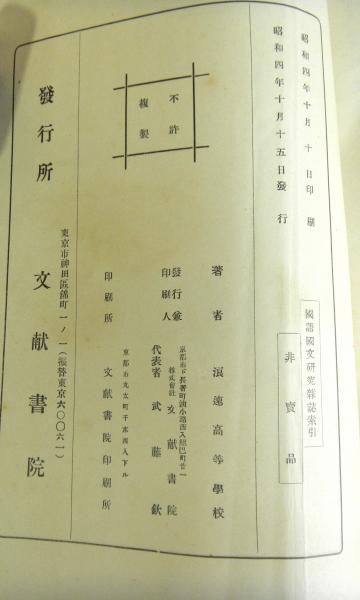 昭和四年十月十日印刷
昭和四年十月十五日發行
國語國文研究雜誌索引
非賣品
不許
複製
著者 浪速高等學校
發行兼
印刷人
株式會社 文献書院
代表者 武藤欽
印刷所
京都市丸太町千本西入下ル
文献書院印刷所
東京市神田區錦町一ノ一(振替東京六〇〇六一)
發行所 文献書院